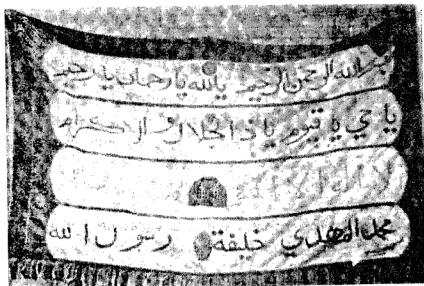 بسم الله الرحمن الرحيم يالله يارحمان يارحيم
ياحي ياقيوم ياذا الجلال والاكرام
لا اله الا
محمد المهدي خليفة رسول الله